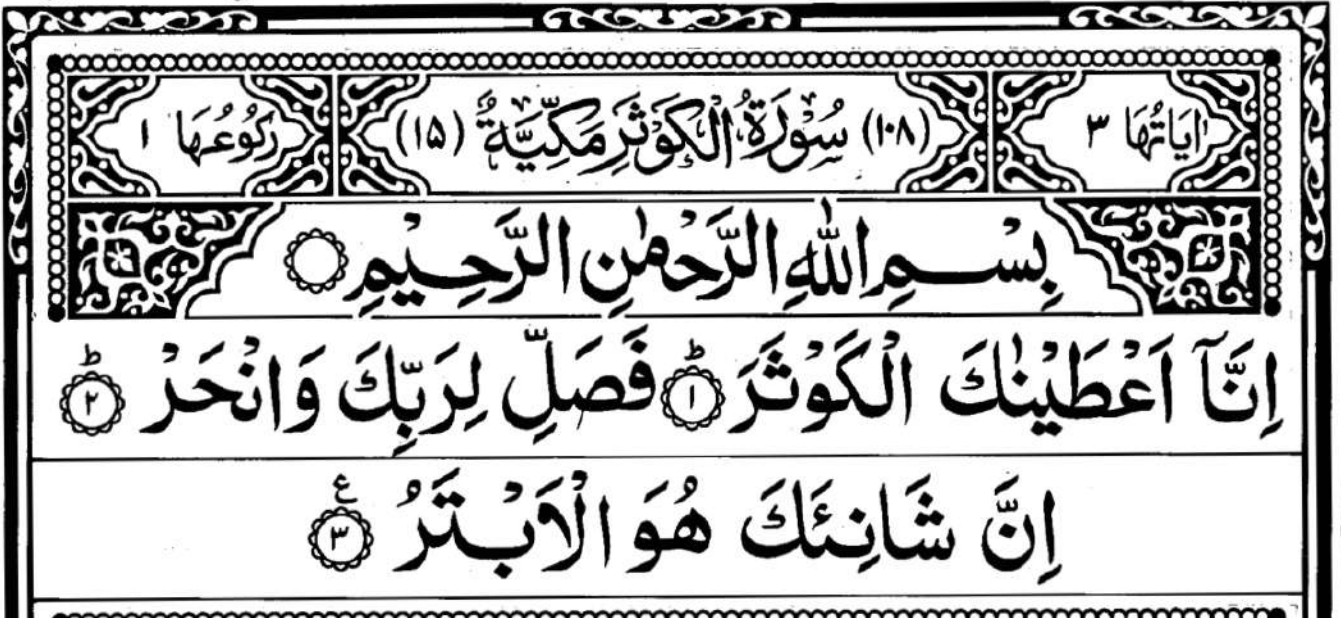 اٰيَاتُهَا ٣ (١٠٨) سُوْرَةُ الْكَوْثَرِ مَكِّيَّةٌ (١٥) رُكُوْعُهَا ١
بِسْمِ اللّٰهِ الرَّحْمٰنِ الرَّحِيْمِ ۝
اِنَّآ اَعْطَيْنٰكَ الْكَوْثَرَ ؕ‏﴿۱﴾ فَصَلِّ لِرَبِّكَ وَانْحَرْ ؕ‏﴿۲﴾
اِنَّ شَانِئَكَ هُوَ الْاَبْتَرُ ﴿۳﴾ ع